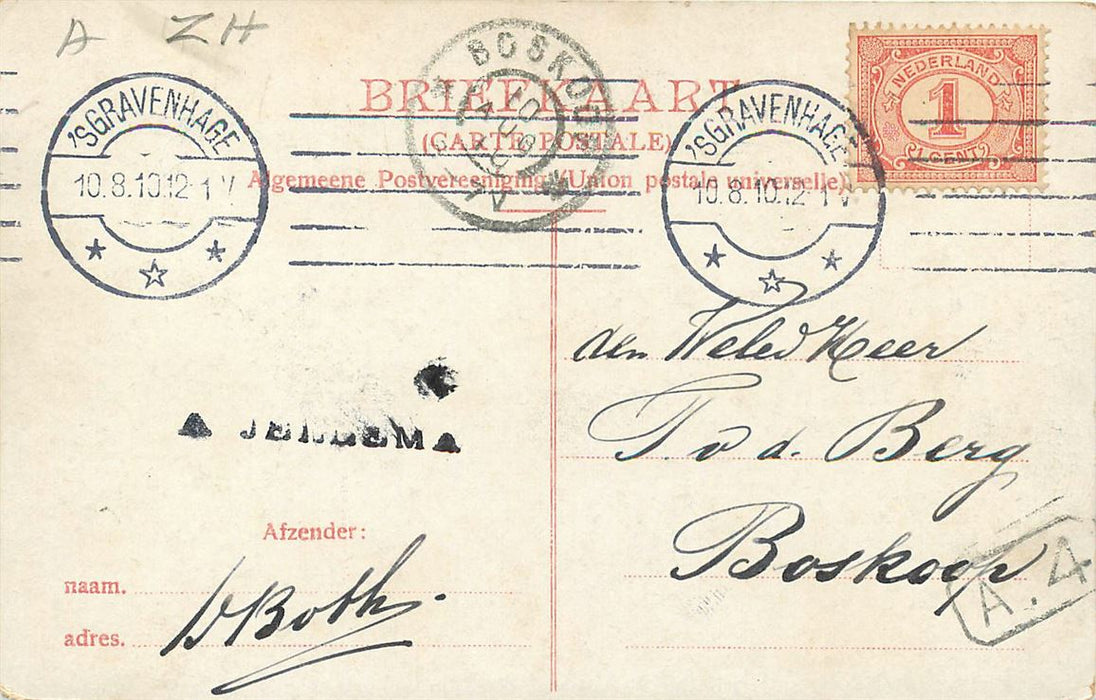 A ZH
BOSKOOP
10
AUG
BRIEFKAART
(CARTE POSTALE)
Algemeene Postvereeniging (Union postale universelle).
'SGRAVENHAGE
10.8.10.12-1 V
'SGRAVENHAGE
10.8.10.12-1 V
NEDERLAND
1
CENT
den Weled Heer
T. v d. Berg
Boskoop
A.4
A JELLEMA
Afzender:
naam.
adres.
Both.